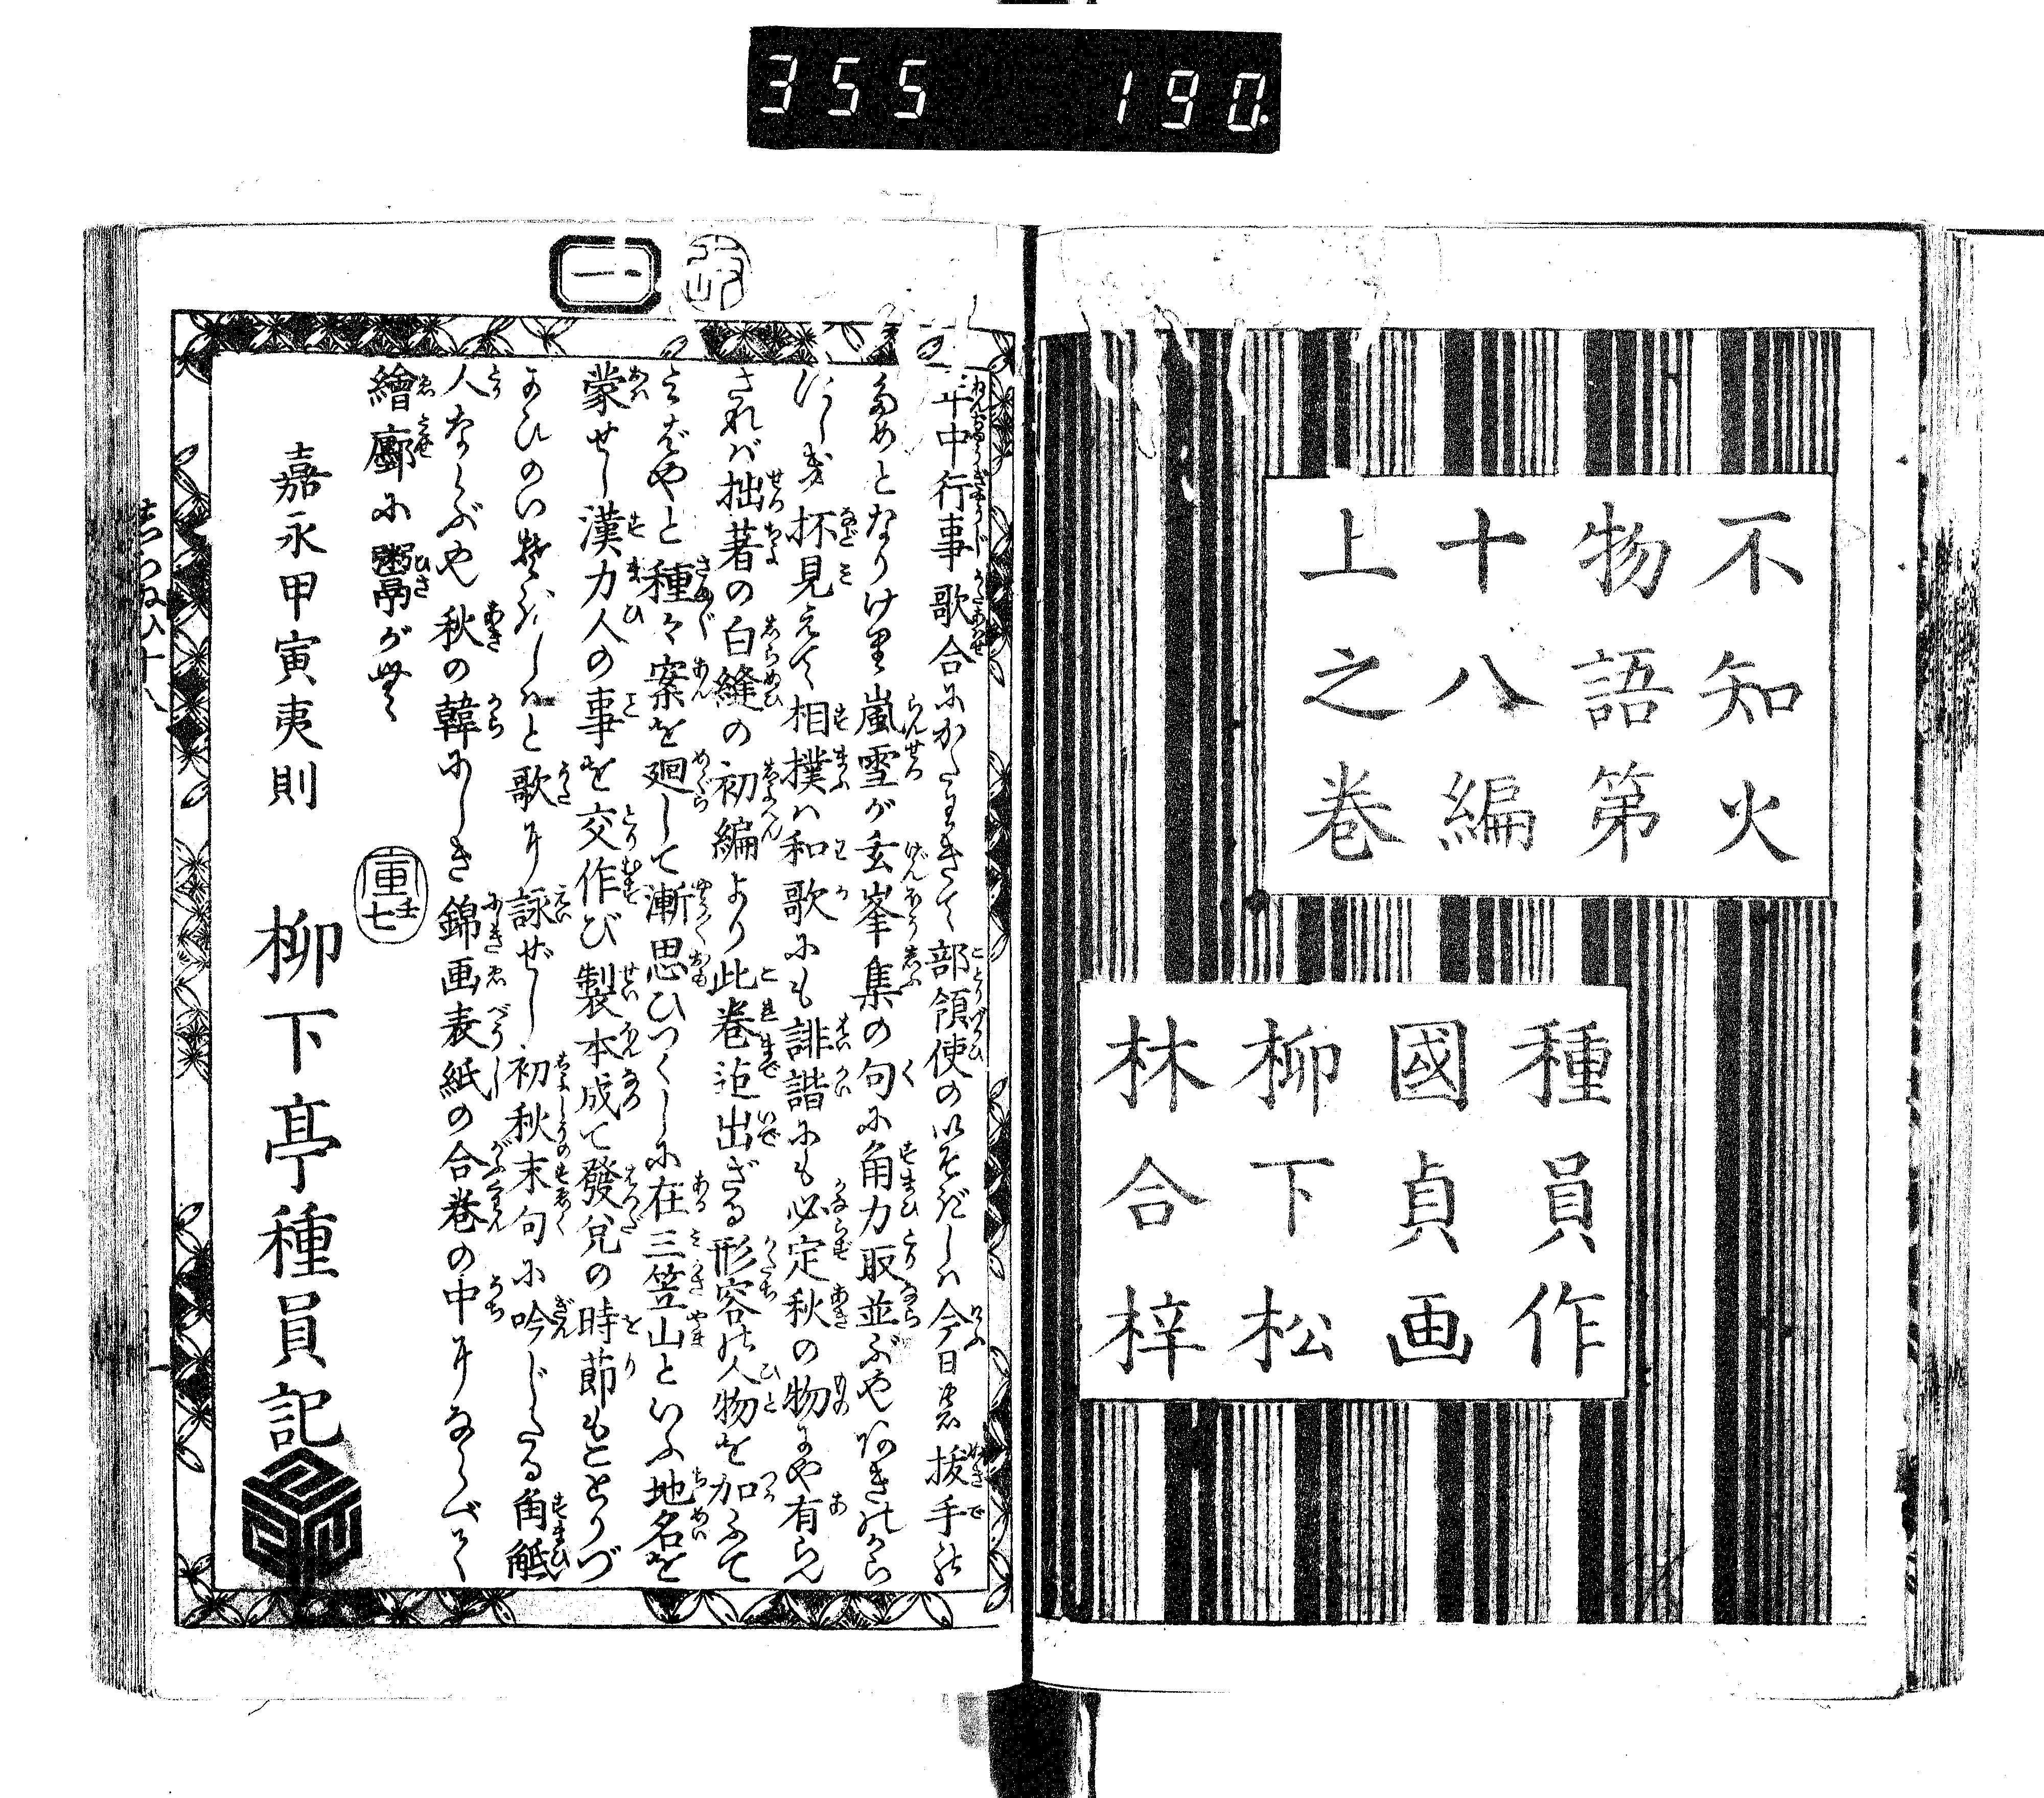 355 190
不知火
物語第
十八編
上之巻
種員作
國貞画
柳下松
林合梓
一
年中行事歌合にかたわきて部領使の以そぎしハ今日の抜手の
ためとなりけり嵐雪が玄峯集の句に角力取並ぶやあきのから
にしき抔見えて相撲ハ和歌にも誹諧にも必定秋の物にや有らん
されバ拙著の白縫の初編より此巻迄出ざる形容の人物を加ふて
とばやと種々案を廻して漸思ひつくしに在三笠山といふ地名を
蒙せし漢力人の事を交作び製本成て發兌の時節もことりづ
かひのいそぎしハと歌に詠ぜし初秋末句に吟じたる角觝
人ならぶや秋の韓にしき錦画表紙の合巻の中にならべて
繪廓に鬻が
嘉永甲寅夷則
柳下亭種員記
しらぬひ十八